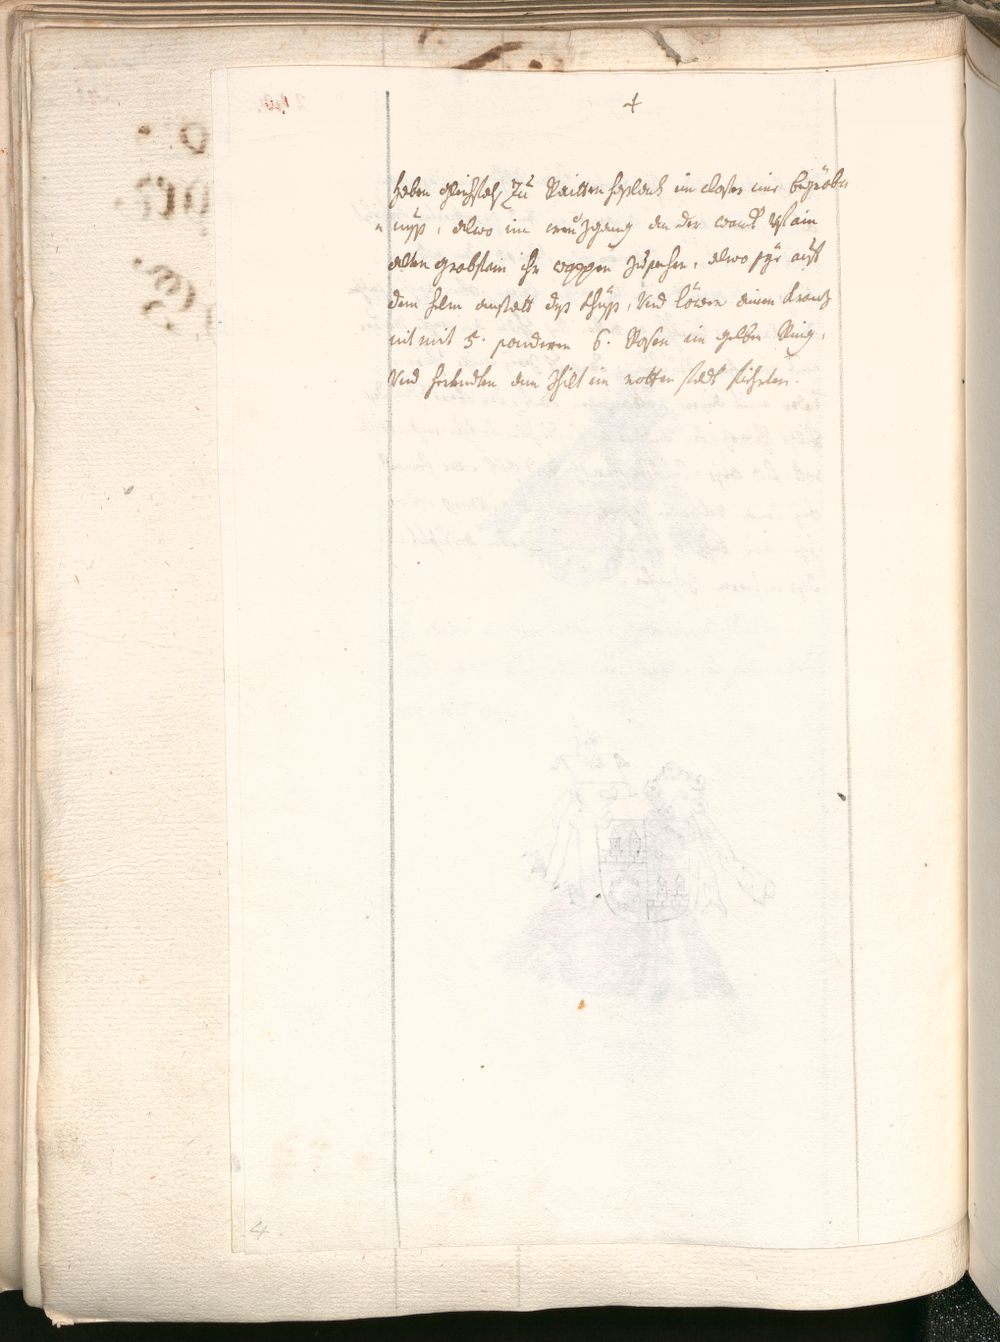 4
haben gleichfals Zu Raittenhaslach im closter eine begröb
nuß, alwo im creuzgang an der wandt ist ain
alten grabstain ihr wappen zusehen, alwo sye auf
dem helm anstatt deß Khüß, Und löwen einen Kranz
nit mit 5. sonderen 6. Rosen im gelben Ring,
Und den Schilt im rotten feldt fiehrten.
4